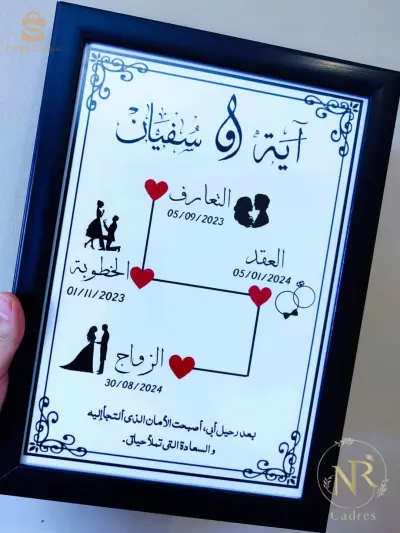 آية و سفيان
التعارف
05/09/2023
العقد
05/01/2024
الخطوبة
01/11/2023
الزواج
30/08/2024
بعد رحيل أبي، أصبحت الأمان الذى ألتجأ إليه
والسعادة التى تملأ حياتى.
NR
Cadres